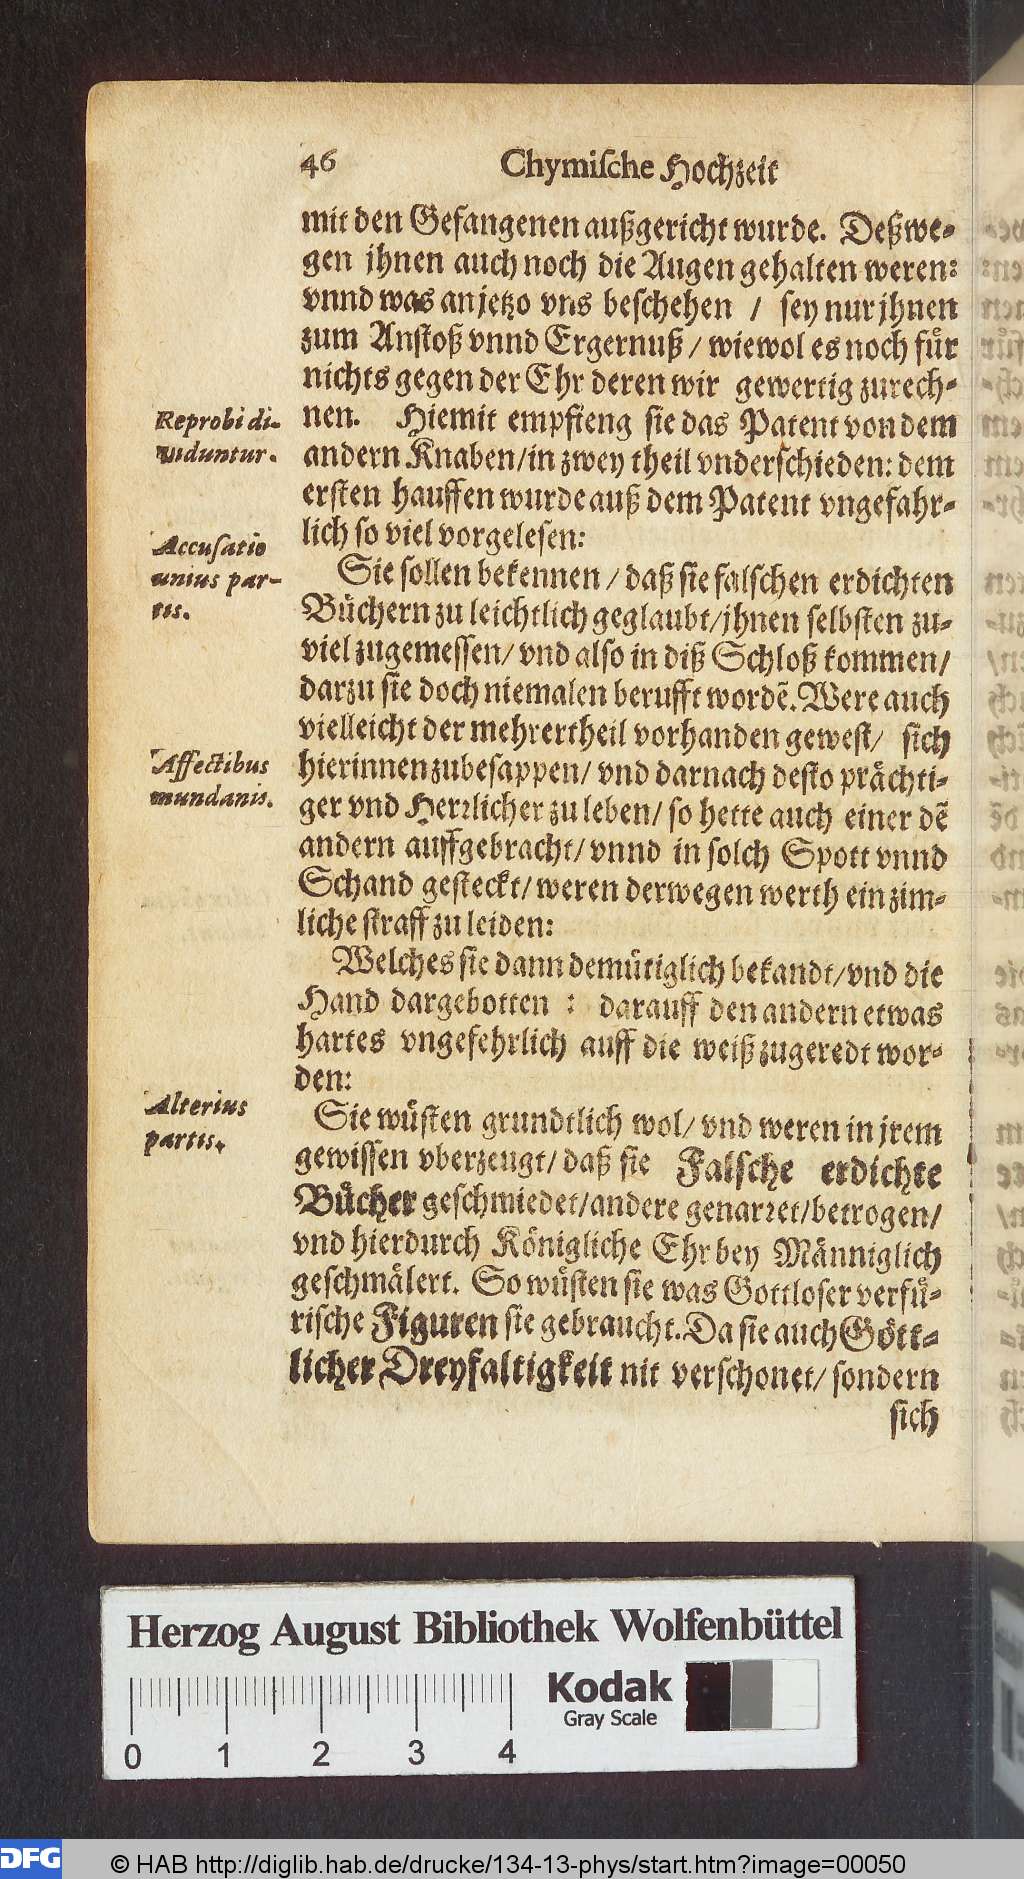 46 Chymiſche Hochzeit
mit den Gefangenen außgericht wurde. Deßwe-
gen jhnen auch noch die Augen gehalten weren:
vnnd was anjetzo vns beſchehen / ſey nur jhnen
zum Anſtoß vnnd Ergernuß / wiewol es noch für
nichts gegen der Ehr deren wir gewertig zurech-
Reprobi di-
viduntur.
nen. Hiemit empfieng ſie das Patent von dem
andern Knaben/in zwey theil vnderſchieden: dem
erſten hauffen wurde auß dem Patent vngefahr-
lich ſo viel vorgeleſen:
Accuſatio
unius par-
tis.
Sie ſollen bekennen / daß ſie falſchen erdichten
Büchern zu leichtlich geglaubt/jhnen ſelbſten zu-
viel zugemeſſen/ vnd alſo in diß Schloß kommen/
darzu ſie doch niemalen berufft wordẽ. Were auch
vielleicht der mehrertheil vorhanden geweſt/ ſich
Affectibus
mundanis.
hierinnen zubeſappen/ vnd darnach deſto prächti-
ger vnd Herꝛlicher zu leben/ ſo hette auch einer dẽ
andern auffgebracht/ vnnd in ſolch Spott vnnd
Schand geſteckt/ weren derwegen werth ein zim-
liche ſtraff zu leiden:
Welches ſie dann demütiglich bekandt/vnd die
Hand dargebotten : darauff den andern etwas
hartes vngefehrlich auff die weiß zugeredt wor-
den:
Alterius
partis.
Sie wüſten grundtlich wol/ vnd weren in jrem
gewiſſen vberzeugt/ daß ſie Falſche erdichte
Bücher geſchmiedet/andere genarꝛet/betrogen/
vnd hierdurch Königliche Ehr bey Männiglich
geſchmälert. So wüſten ſie was Gottloſer verfü-
riſche Figuren ſie gebraucht. Da ſie auch Gött-
licher Dreyfaltigkeit nit verſchonet/ ſondern
ſich
Herzog August Bibliothek Wolfenbüttel
Kodak
Gray Scale
0 1 2 3 4
DFG
© HAB http://diglib.hab.de/drucke/134-13-phys/start.htm?image=00050